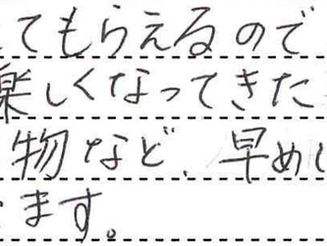 てもらえるので
楽しくなってきた
物など、早めし
ます。